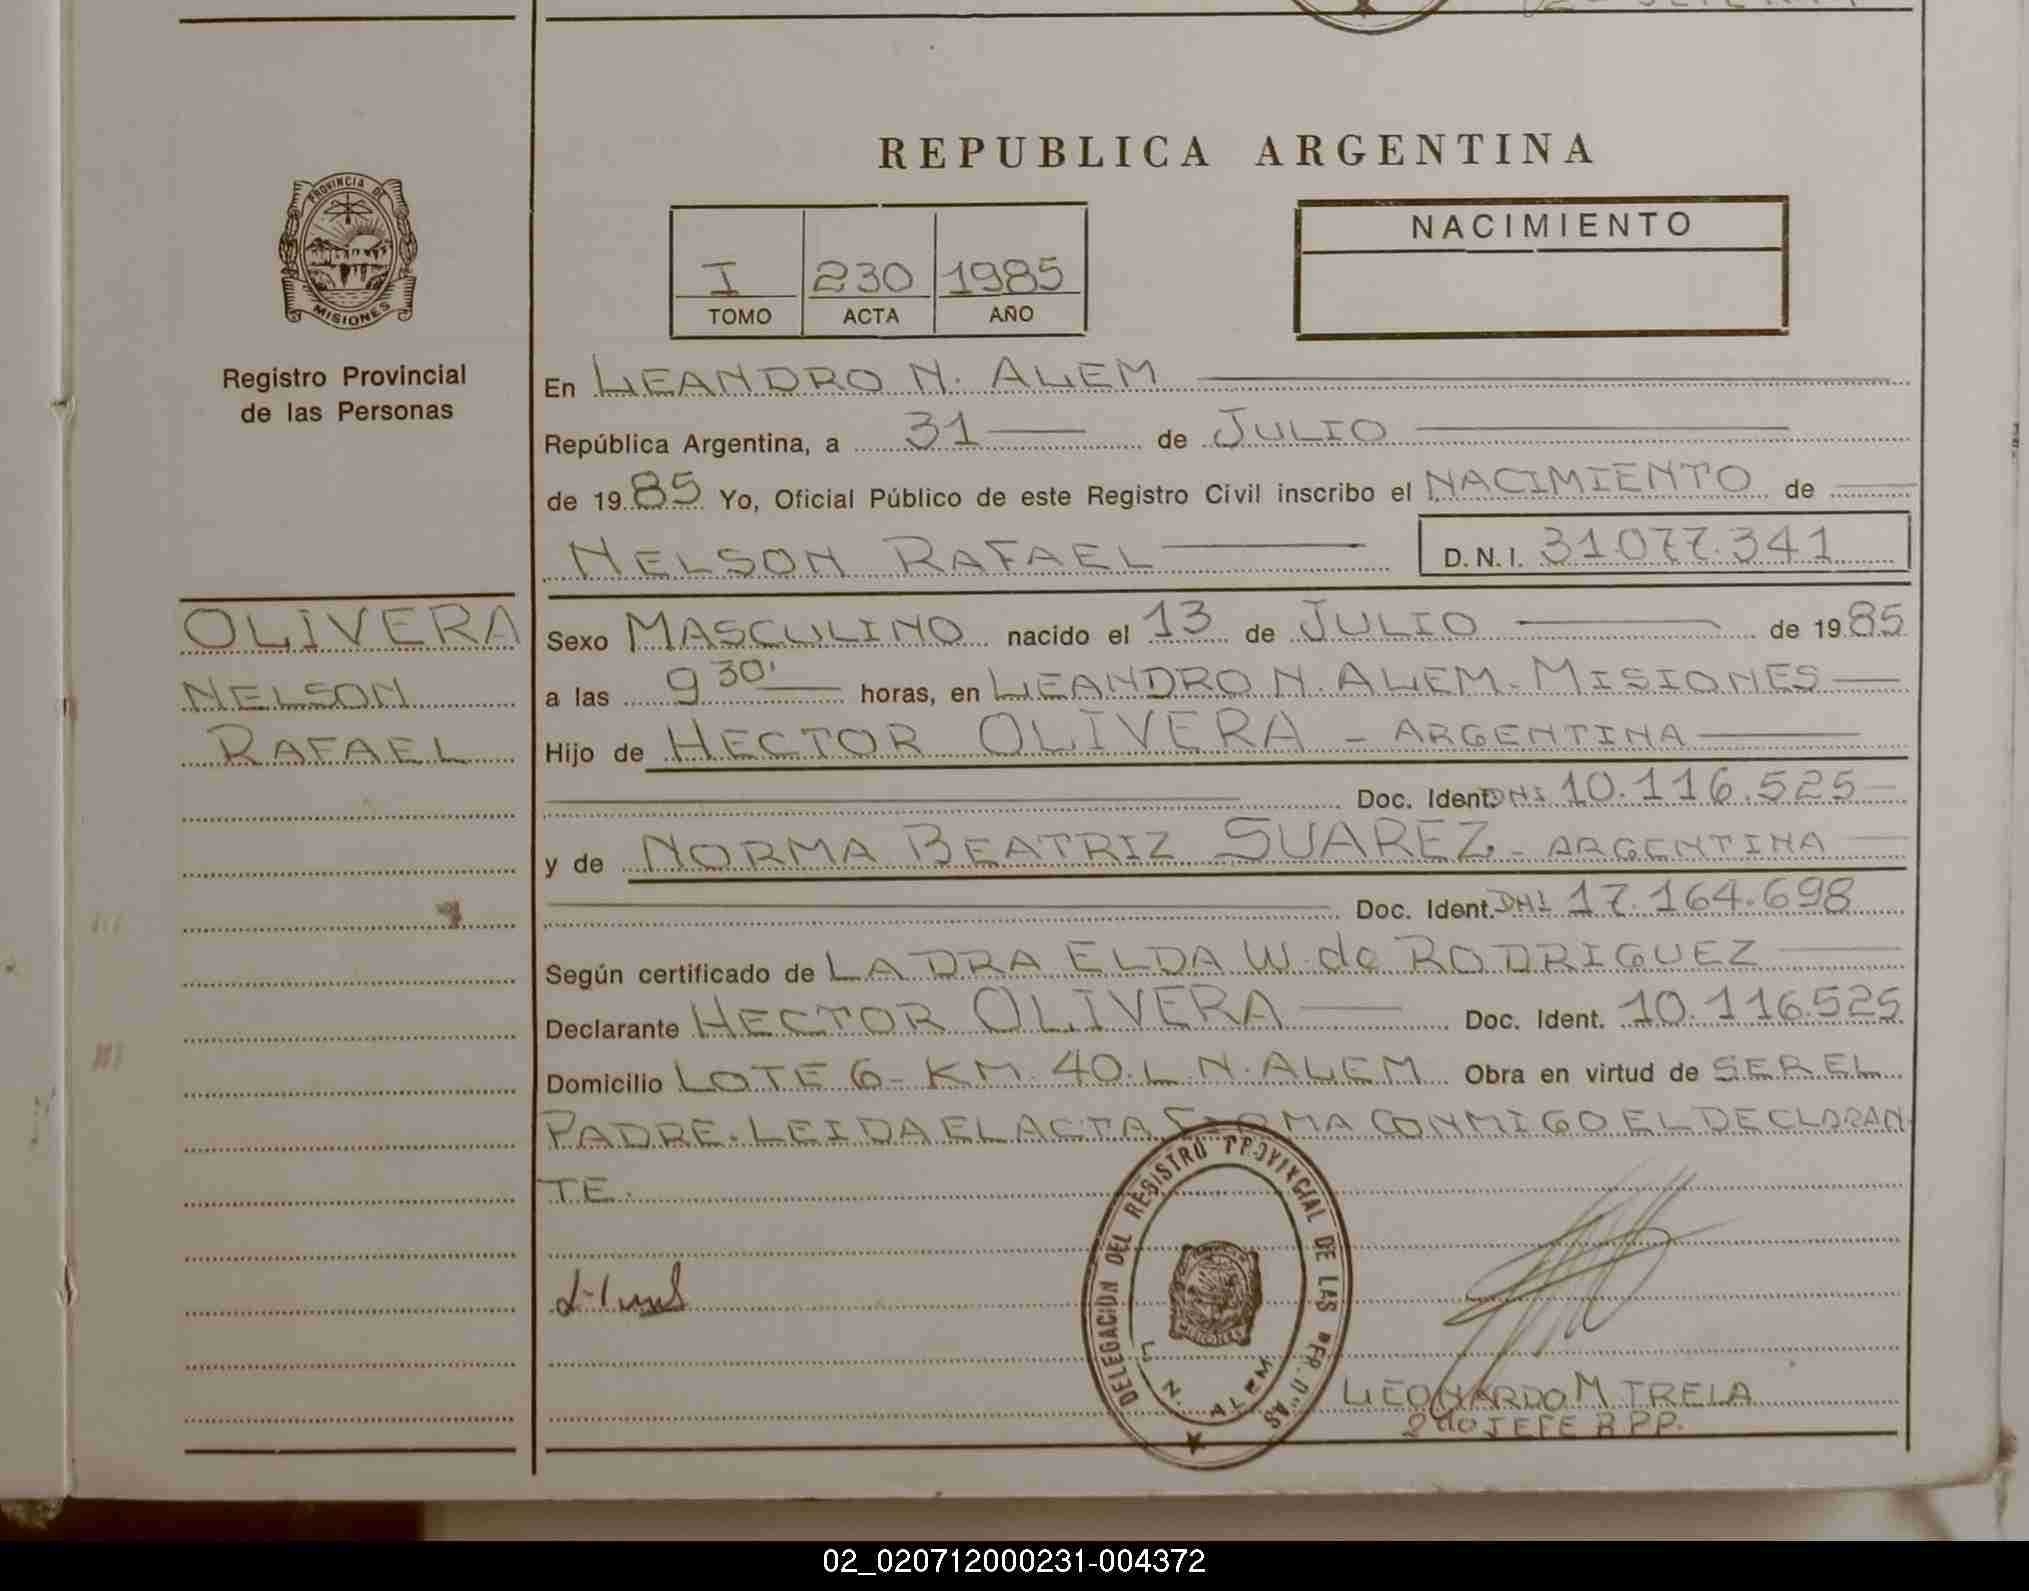 REPUBLICA ARGENTINA
PROVINCIA DE
MISIONES
Registro Provincial
de las Personas
I 230 1985
TOMO ACTA AÑO
NACIMIENTO
En LEANDRO N. ALEM
República Argentina, a 31 de JULIO
de 1985 Yo, Oficial Público de este Registro Civil inscribo el NACIMIENTO de
NELSON RAFAEL D.N.I. 31.077.341
OLIVERA
NELSON
RAFAEL
Sexo MASCULINO nacido el 13 de JULIO de 1985
a las 9 30' horas, en LEANDRO N. ALEM-MISIONES
Hijo de HECTOR OLIVERA - ARGENTINA
Doc. Ident. DNI 10.116.525
y de NORMA BEATRIZ SUAREZ - ARGENTINA
Doc. Ident. DNI 17.164.698
Según certificado de LA DRA ELDA W. de RODRIGUEZ
Declarante HECTOR OLIVERA Doc. Ident. 10.116.525
Domicilio LOTE 6- KM. 40. L. N. ALEM Obra en virtud de SER EL
PADRE. LEIDA EL ACTA FIRMA CONMIGO EL DECLARAN
TE.
DELEGACIÓN DEL REGISTRO PROVINCIAL DE LAS PER.NAS
MISIONES
L. N. ALEM
LEONARDO M TRELA
2do JEFE R PP.
02_020712000231-004372